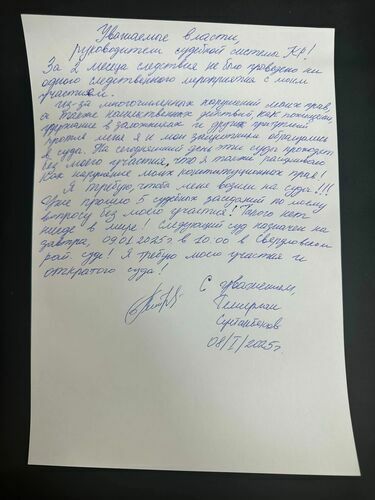 Уважаемые власти,
руководители судебной системы КР!
За 2 месяца следствия не было проведено ни
одного следственного мероприятия с моим
участием.
Из-за многочисленных нарушений моих прав,
а также насильственных действий, как похищение,
удержание в заложниках и других физ.
против меня я и мои защитники обращались
в суды. На сегодняшний день эти суды проходят
без моего участия, что я также расцениваю
как нарушение моих конституционных прав!
Я требую, чтобы меня возили на суда!!!
Уже прошло 5 судебных заседаний по моему
вопросу без моего участия! Такого нет
нигде в мире! Следующий суд назначен на
завтра, 09.01.2025г в 10.00 в Свердловском
рай. суде! Я требую моего участия и
открытого суда!
С уважением,
Темирлан
Султанбеков
08/I/2025г.